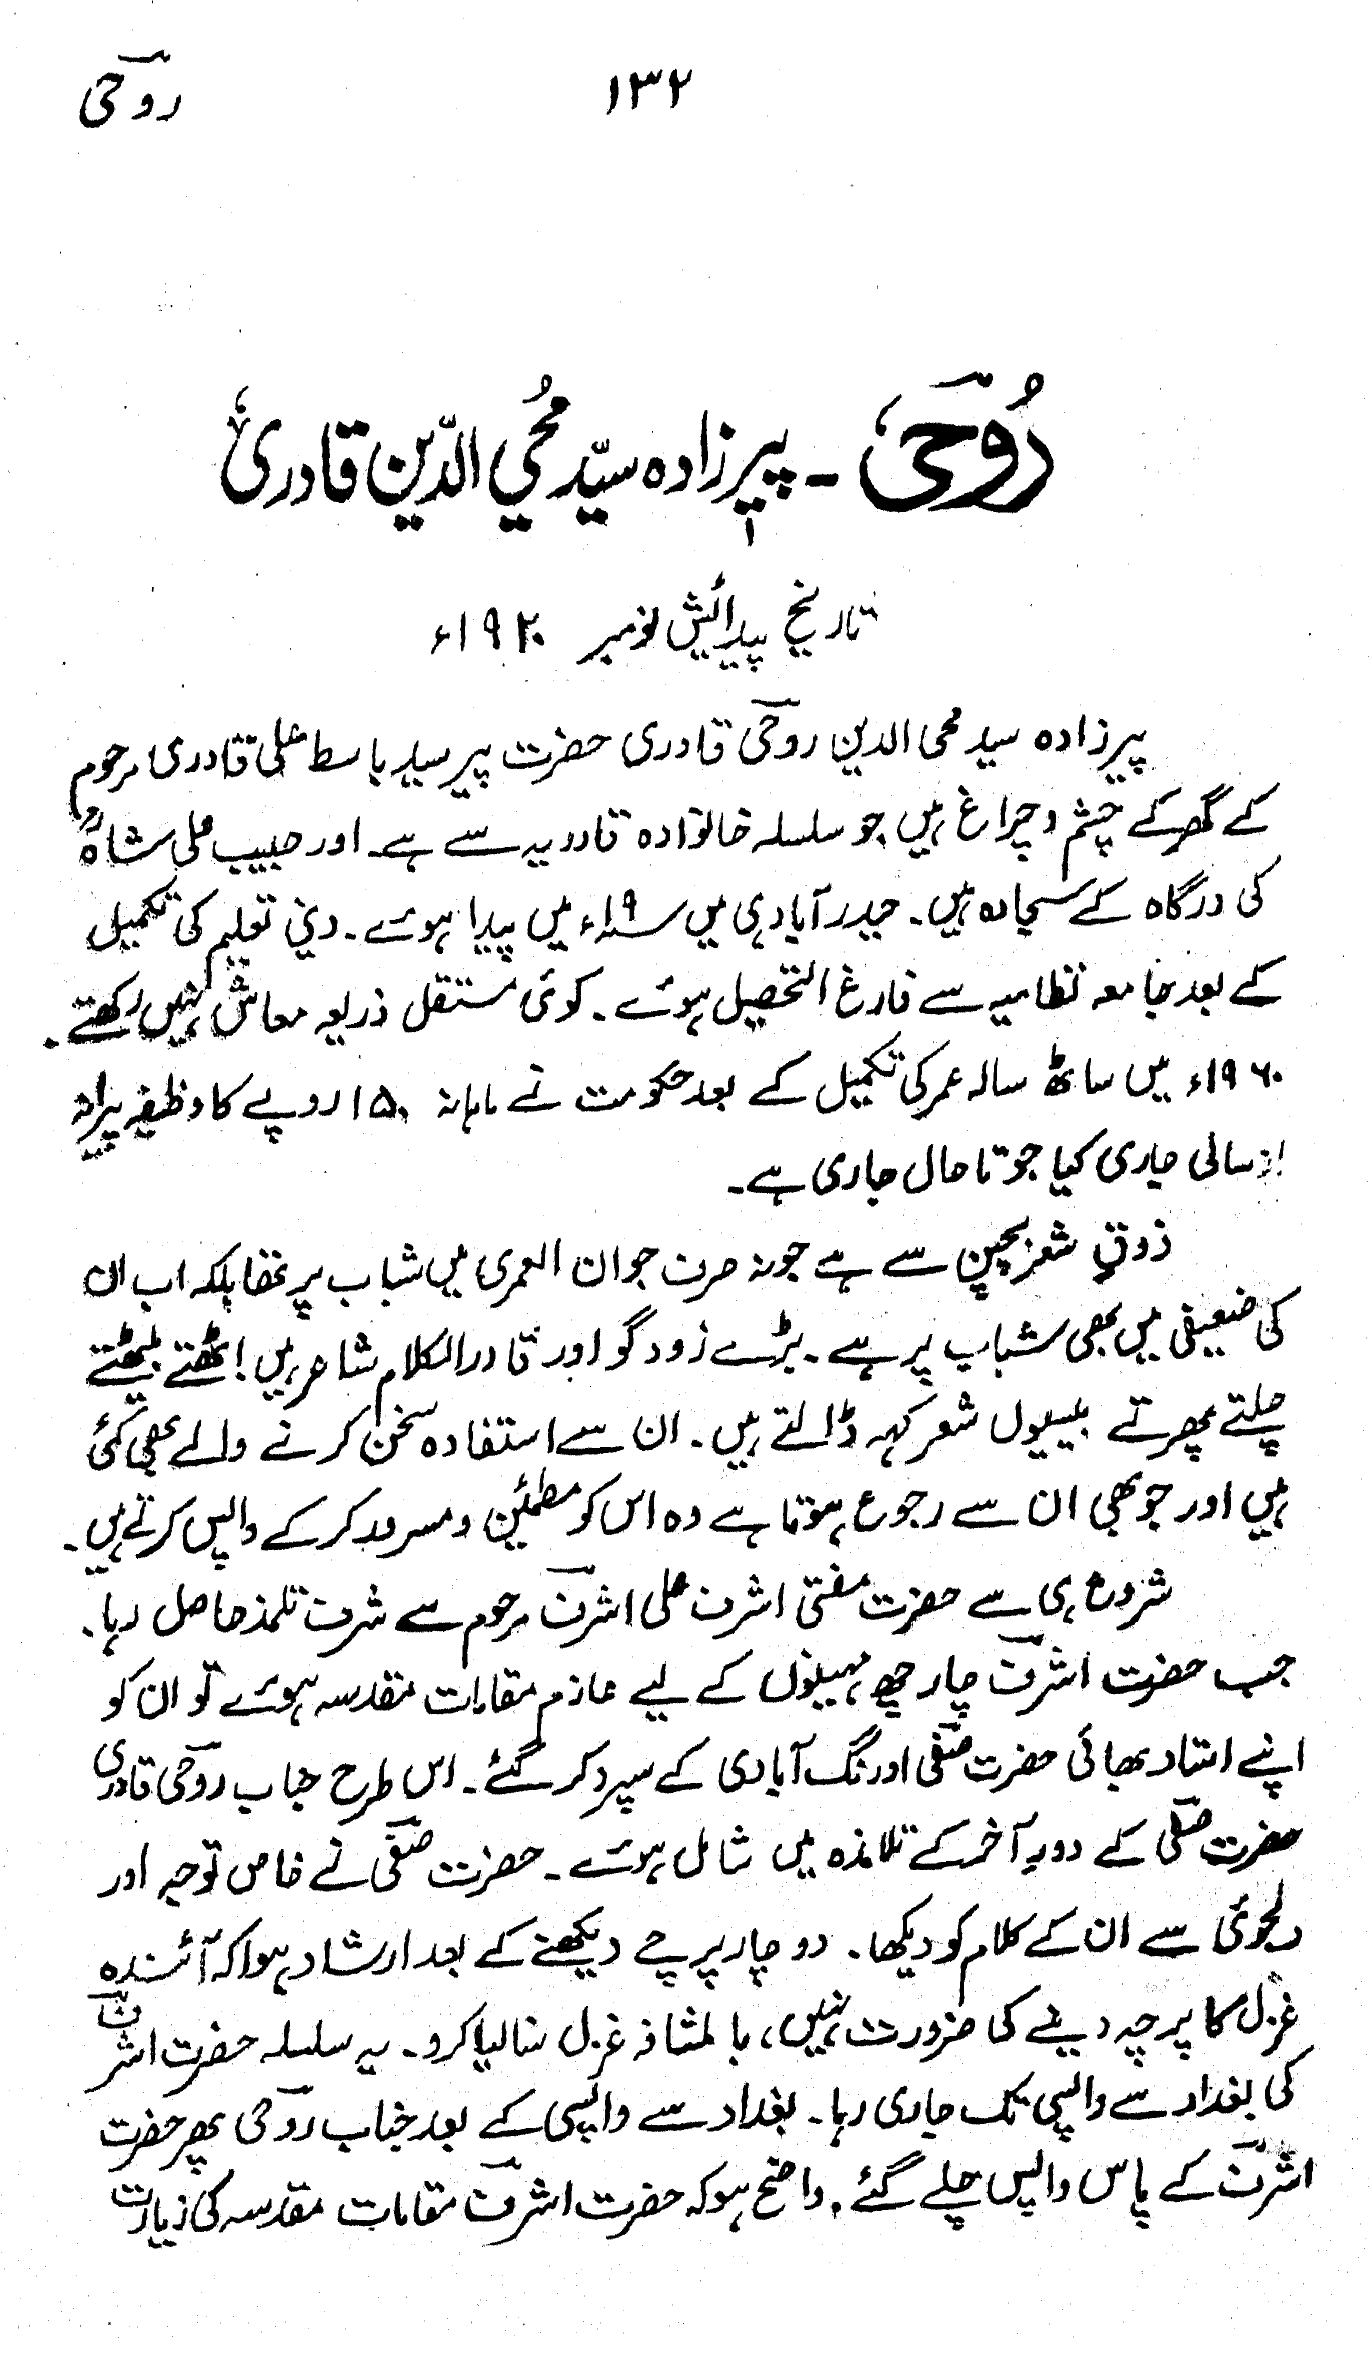 روحیؔ
۱۳۲
رُوحیؔ ۔ پیرزادہ سیّد مُحی الدّین قادری
تاریخ پیدائش نومبر ۱۹۲۰ء
پیرزادہ سید محی الدین روحیؔ قادری حضرت پیر سید باسط علی قادری مرحوم
کے گھر کے چشم و چراغ ہیں جو سلسلہ خانوادہ قادریہ سے ہے۔ اور حبیب علی شاہؒ
کی درگاہ کے سجادہ ہیں۔ حیدرآباد ہی میں میں پیدا ہوئے۔ دینی تعلیم کی تکمیل
کے بعد جامعہ نظامیہ سے فارغ التحصیل ہوئے۔ کوئی مستقل ذریعہ معاش نہیں رکھتے۔
۱۹۶۰ء میں ساٹھ سالہ عمر کی تکمیل کے بعد حکومت نے ماہانہ ۱۵۰ روپے کا وظیفہ پیرانہ
سالی جاری کیا جو تا حال جاری ہے۔
ذوقِ شعر بچپن سے ہے جو نہ صرف جوان العمری میں شباب پر تھا بلکہ اب ان
کی ضعیفی میں بھی شباب پر ہے۔ بڑے زود گو اور قادر الکلام شاعر ہیں! اٹھتے بیٹھتے
چلتے پھرتے بیسیوں شعر کہہ ڈالتے ہیں۔ ان سے استفادہ سخن کرنے والے بھی کئی
ہیں اور جو بھی ان سے رجوع ہوتا ہے وہ اس کو مطمئن و مسرور کر کے واپس کرتے ہیں۔
شروع ہی سے حضرت مفتی اشرف علی اشرفؔ مرحوم سے شرف تلمذ حاصل رہا۔
جب حضرت اشرفؔ چار چھ مہینوں کے لیے عازم مقامات مقدسہ ہوئے تو ان کو
اپنے استاد بھائی حضرت صفیؔ اورنگ آبادی کے سپرد کر گئے۔ اس طرح جناب روحیؔ قادری
حضرت صفیؔ کے دورِ آخر کے تلامذہ میں شامل ہوئے۔ حضرت صفیؔ نے خاص توجہ اور
دلجوئی سے ان کے کلام کو دیکھا۔ دو چار پرچے دیکھنے کے بعد ارشاد ہوا کہ آئندہ
غزل کا پرچہ دینے کی ضرورت نہیں، بالمشافہ غزل سنا لیا کرو۔ یہ سلسلہ حضرت اشرفؔ
کی بغداد سے واپسی تک جاری رہا۔ بغداد سے واپسی کے بعد جناب روحیؔ پھر حضرت
اشرفؔ کے پاس واپس چلے گئے۔ واضح ہو کہ حضرت اشرفؔ مقامات مقدسہ کی زیارت